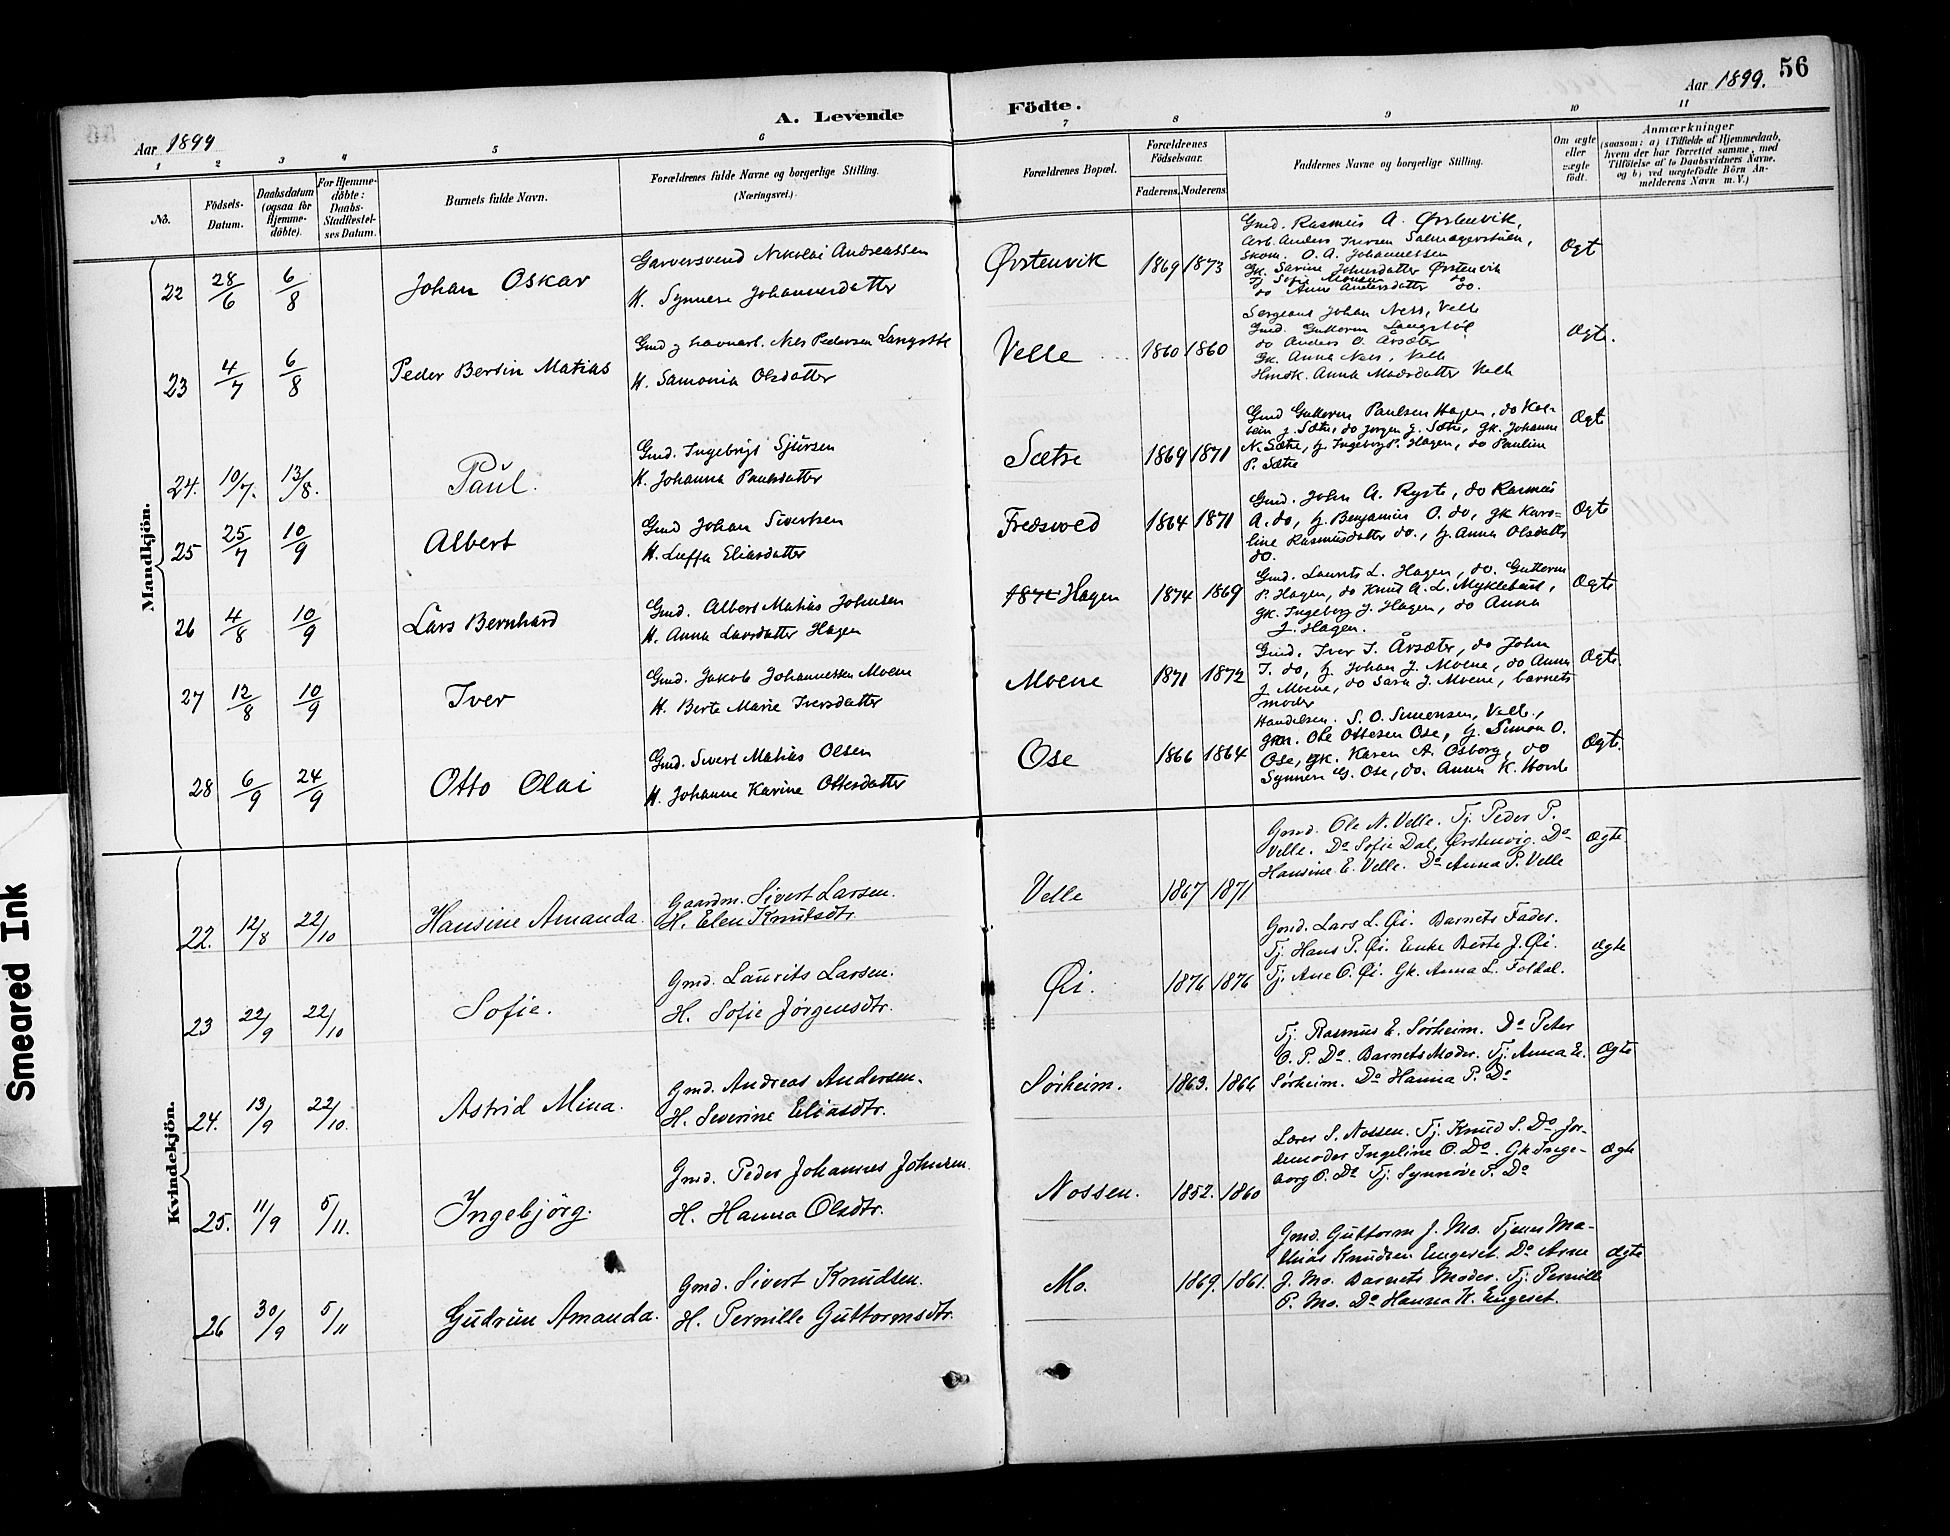 56
A. Levende Födte.
Aar 1899
Aar 1899.
1 2 3 4 5 6 7 8 9 10 11
No.
Födsels-
Datum.
Daabsdatum
(ogsaa for
Hjemme-
döbte).
For Hjemme-
döbte:
Daabs-
Stadfestel-
ses Datum.
Barnets fulde Navn.
Forældrenes fulde Navne og borgerlige Stilling.
(Næringsvei).
Forældrenes Bopæl.
Forældrenes
Födselsaar.
Faderens. Moderens.
Faddernes Navne og borgerlige Stilling.
Om ægte
eller
uægte
födt.
Anmærkninger
(saasom: a) i Tilfælde af Hjemmedaab,
hvem der har forrettet samme, med
Tilföielse af to Daabsvidners Navne,
og b) ved uægtefödte Börn An-
melderens Navn m. V.)
Mandkjön.
22 28/6 6/8 Johan Oskar
Garversvend Nikolai Andreassen
H. Synnere Johannesdatter
Ørstenvik 1869 1873
Gmd. Rasmus A. Ørstenvik,
Arb. Anders Iversen
Skom. O. A. Johannessen
Gk. Sarine Johnsdatter Ørstenvik
Tj. Sofie do
do Anne Andersdatter do.
Ægt
23 4/7 6/8 Peder Bersin Matias
Gmd g Nils Pedersen
H. Samonia Olsdatter
Velle 1860 1860
Sergeant Johan Ness, Velle
Gmd. Guttorm
do Anders O. Årsæter
Gk. Anna Nees, Velle
Hmdk. Anna Madsdatter Velle
Ægte.
24. 10/7. 13/8. Paul.
Gmd. Ingebrigt Sjursen
H. Johanna Paulsdatter
Sætre 1869 1871
Gmd Guttorm Paulsen Hagen, do Kol-
bein J. Sætre, do Jørgen J. Sætre, Gk. Johanne
N. Sætre, Tj. Ingeborg P. Hagen, do Pauline
P. Sætre
Ægte
25 25/7 10/9 Albert
Gmd Johan Sivertsen
H. Luffa Eliasdatter
Fredsvoed 1864 1871
Gmd. John A. Ryste, do Rasmus
A. do, Tj. Benjamin O. do, Gk Karo-
line Rasmusdatter do., Tj. Anna Olsdatter
do.
Ægte
26 4/8 10/9 Lars Bernhard
Gmd. Albert Matias Johnsen
H. Anna Larsdatter Hagen
1872 Hagen 1874 1869
Gmd. Laurits L. Hagen, do. Guttorm
P. Hagen, do Knut A. L. Myklebust,
Gk. Ingeborg J. Hagen, do Anna
J. Hagen.
Ægte
27 12/8 10/9 Iver
Gmd. Jakob Johannessen Moene
H. Berte Marie Iversdatter
Moene 1871 1872
Gmd. Iver I. Årsæter, do John
I. do, Tj. Johan J. Moene, do Anna
J. Moene, do Sara J. Moene, barnets
moder
Ægte.
28 6/9 24/9 Otto Olai
Gmd. Sivert Matias Olsen
H. Johanne Karine Ottesdatter
Ose 1866 1864
Handelsm. S. O. Simensen, Velle,
Gmd. Ole Ottesen Ose, Tj. Simon O.
Ose, Gk. Karen A. Osborg, do
Synnere G. Ose, do. Anna K. Hovde
Ægte.
Kvindekjön.
22. 12/8 22/10 Hansine Amanda.
Gaardm. Sivert Larsen.
H. Elen Knutsdtr.
Velle 1867 1871
Gmd. Ole N. Velle. Tj. Peder P.
Velle. Do Sofie Dal, Ørstenvig. Do
Hansine E. Velle. Do Anna P. Velle
Ægte
23 22/9 22/10 Sofie.
Gmd. Laurits Larsen.
H. Sofie Jørgensdtr.
Øi. 1876 1876
Gmd. Lars L. Øi. Barnets Fader.
Tj. Hans P. Øi. Enke Berte J. Øi.
Tj. Ane O. Øi. Gk. Anna L. Foldal.
Ægte
24. 13/9 22/10. Astrid Mina.
Gmd. Andreas Andersen.
H. Severine Eliasdtr.
Sørheim. 1863. 1866
Tj. Rasmus E. Sørheim. Do Peter
O. P. Do. Barnets Moder. Tj. Anna E.
Sørheim. Do Hanna P. Do
Ægte
25. 11/9 5/11. Ingebjörg.
Gmd. Peder Johannes Johnsen
H. Hanna Olsdtr.
Nossen. 1852. 1860
Lærer S. Nossen. Tj. Knud S. Do. Jor-
demoder Ingeline O. Do. Gk. Inge-
borg O. Do Tj. Synnøve P. Do
Ægte
26 30/9 5/11 Gudrun Amanda.
Gmd. Sivert Knudsen.
H. Pernille Guttormsdtr.
Mo. 1869. 1861.
Gmd. Guttorm J. Mo. Tjener Ma-
thias Knudsen Engeset. Do Arne
J. Mo. Barnets Moder. Tj. Pernille
P. Mo. Do Hanna K. Engeset.
Ægte
Smeared Ink